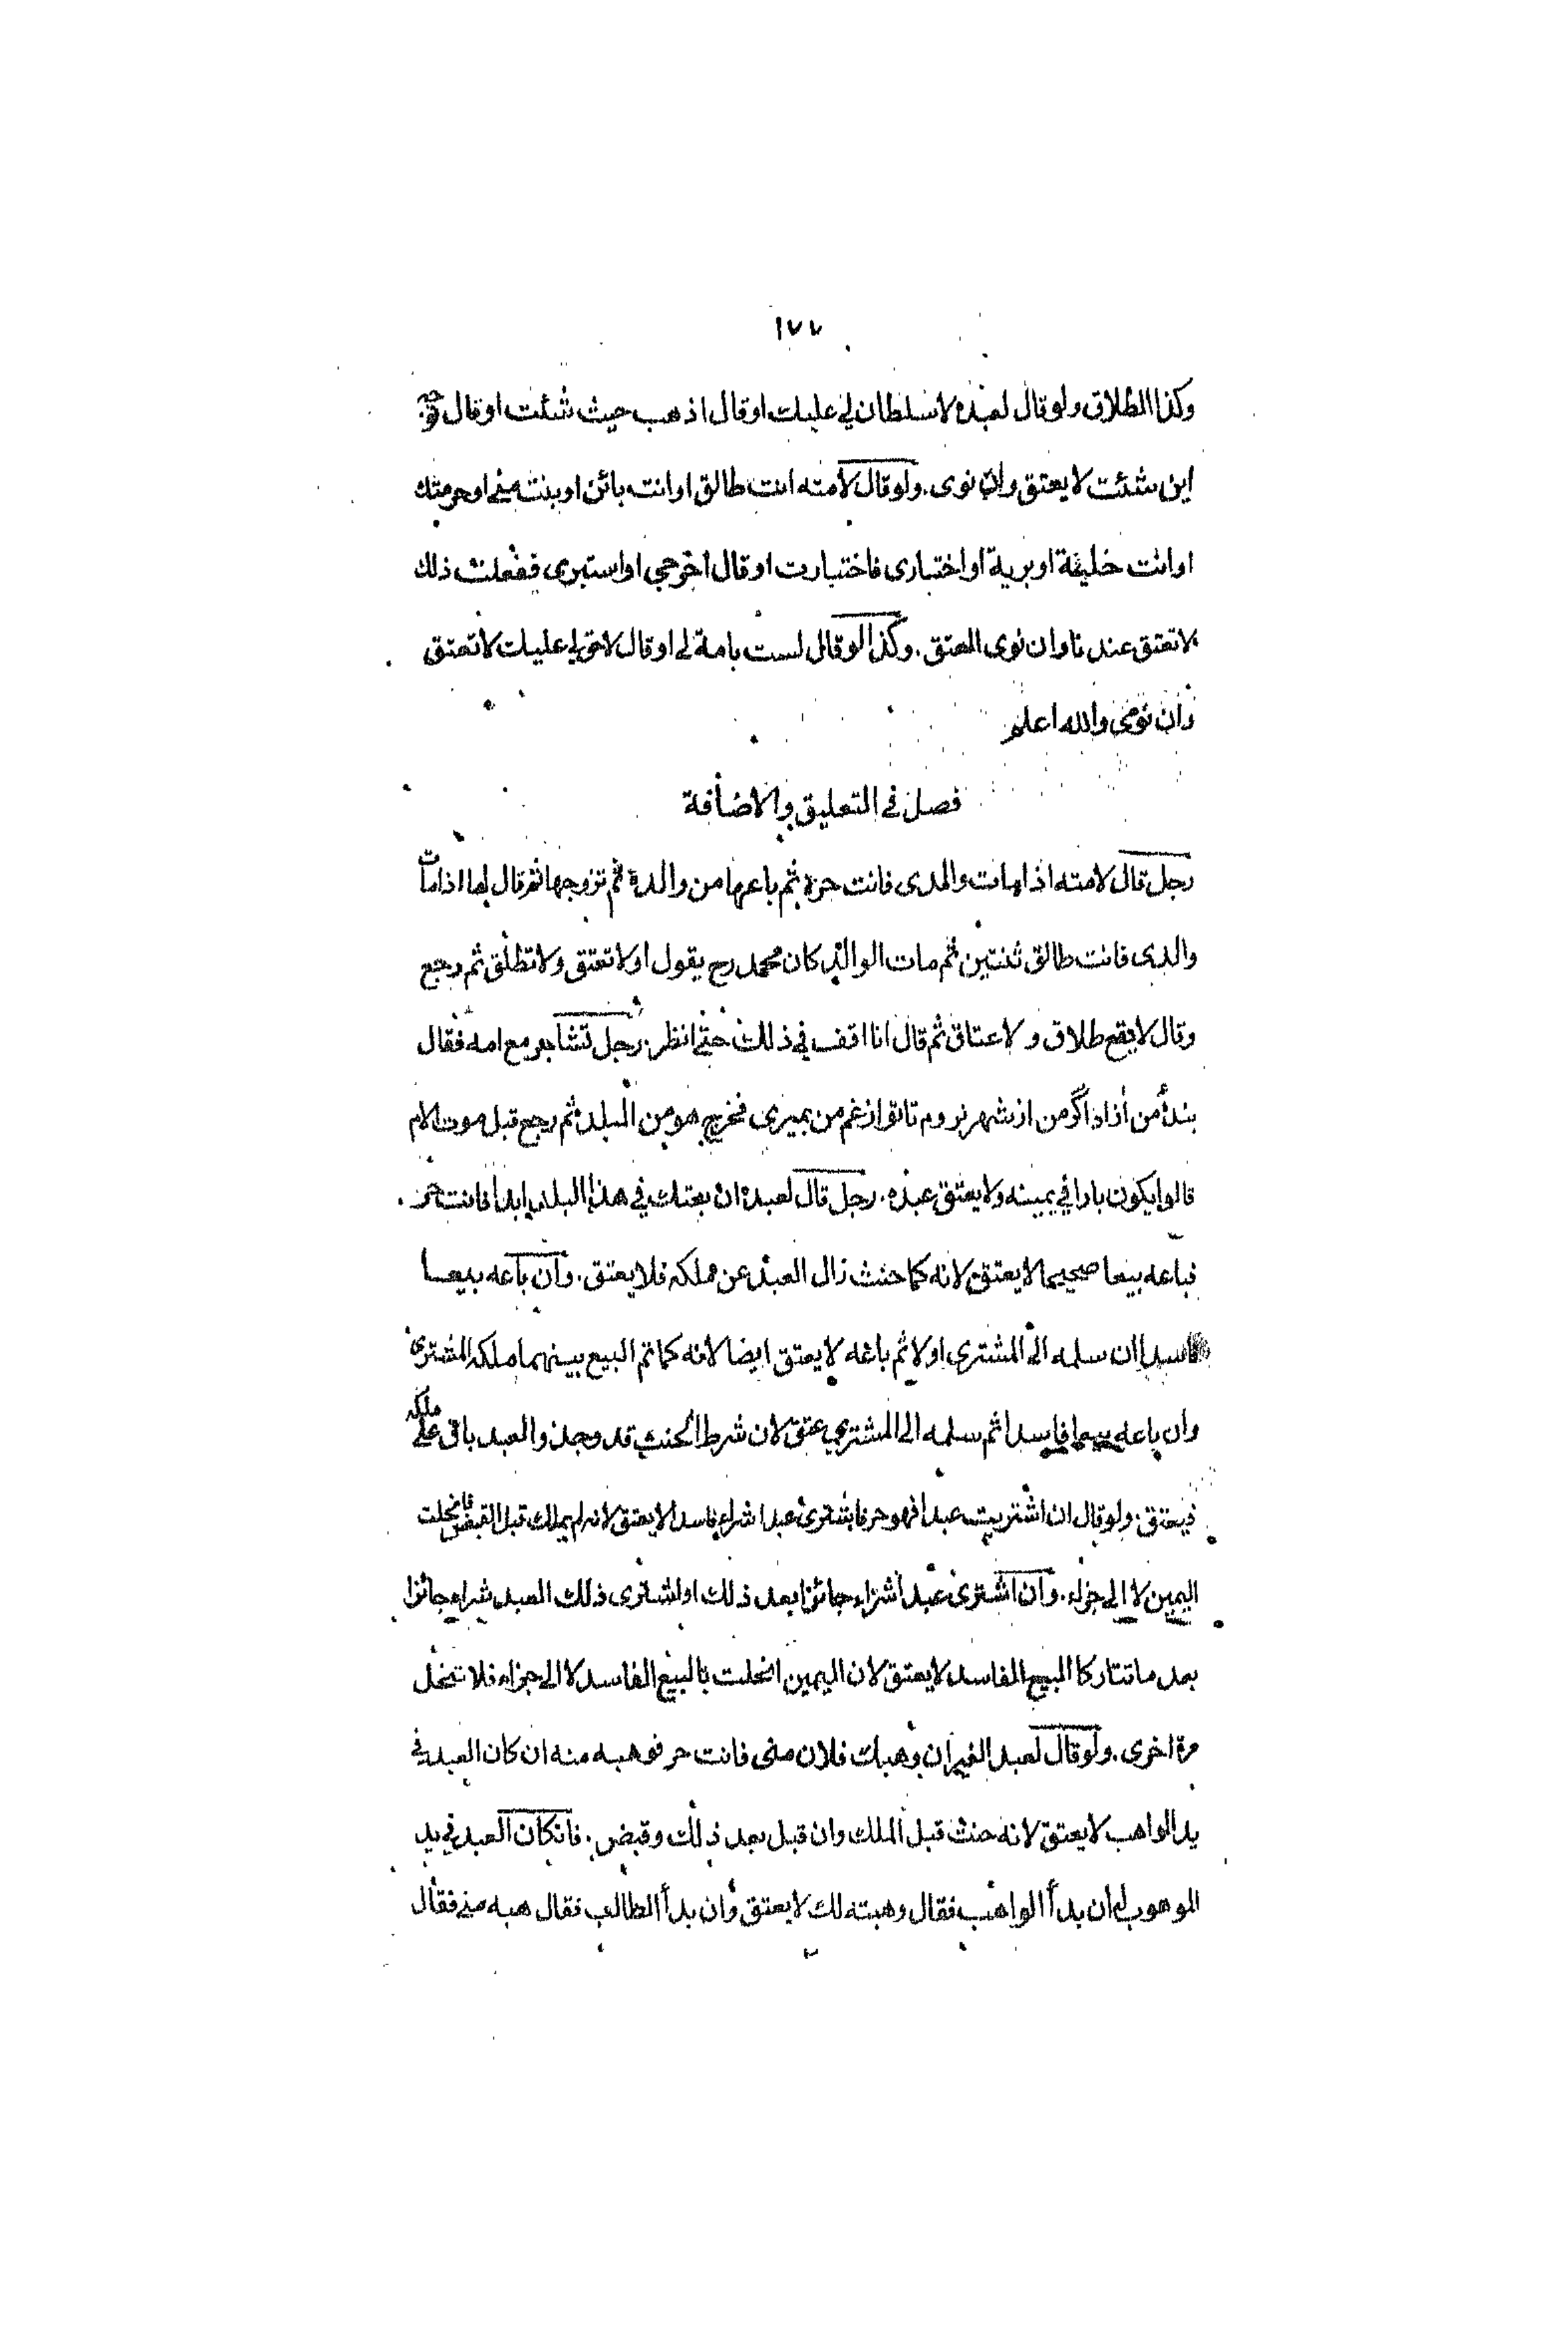 ١٧٧
وكذا الطلاق ولو قال لعبده لا سلطان لي عليك او قال اذهب حيث شئت او قال توجه
اين شئت لا يعتق وان نوى . ولو قال لامته انت طالق او انت بائن او بنت مني او حرمتك
او انت خلية او برية او اختارى فاختارت او قال اخرجي او استبرى ففعلت ذلك
لا تعتق عندنا وان نوى العتق . وكذا لو قال لست بامة لي او قال لا حق لي عليك لا تعتق
وان نوى والله اعلم
فصل في التعليق والاضافة
رجل قال لامته اذا مات والدى فانت حرة ثم باعها من والده ثم تزوجها ثم قال لها اذا مات
والدى فانت طالق ثنتين ثم مات الوالد كان محمد رح يقول اولا تعتق ولا تطلق ثم رجع
وقال لا يقع طلاق ولا عتاق ثم قال انا اقف في ذلك حتى انظر . رجل تشاجر مع امه فقال
بندۀ من آزاد اگر من ازشهر نروم تا تو ازغم من بميرى فخرج هو من البلدة ثم رجع قبل موت الام
قالوا يكون بارا في يمينه ولا يعتق عبده . رجل قال لعبده ان بعتك في هذا البلد ابدا فانت حر
فباعه بيعا صحيحا لا يعتق لانه كما حنث زال العبد عن ملكه فلا يعتق . وان باعه بيعا
فاسدا ان سلمه الى المشترى اولا ثم باعه لا يعتق ايضا لانه كما تم البيع بينهما ملكه المشترى
وان باعه بيعا فاسدا ثم سلمه الى المشترى عتق لان شرط الحنث قد وجد والعبد باق على ملكه
فيعتق . ولو قال ان اشتريت عبدا فهو حر فاشترى عبدا شراء فاسدا لا يعتق لانه لم يملك قبل القبض فانحلت
اليمين لا الى جزاء . وان اشترى عبدا شراء جائزا بعد ذلك او اشترى ذلك العبد شراء جائزا
بعد ما تتاركا البيع الفاسد لا يعتق لان اليمين انحلت بالبيع الفاسد لا الى جزاء فلا تنحل
مرة اخرى . ولو قال لعبد الغير ان وهبك فلان منى فانت حر فوهبه منه ان كان العبد في
يد الواهب لا يعتق لانه حنث قبل الملك وان قبل بعد ذلك وقبض . فان كان العبد في يد
الموهوب له ان بدأ الواهب فقال وهبته لك لا يعتق وان بدأ الطالب فقال هبه مني فقال